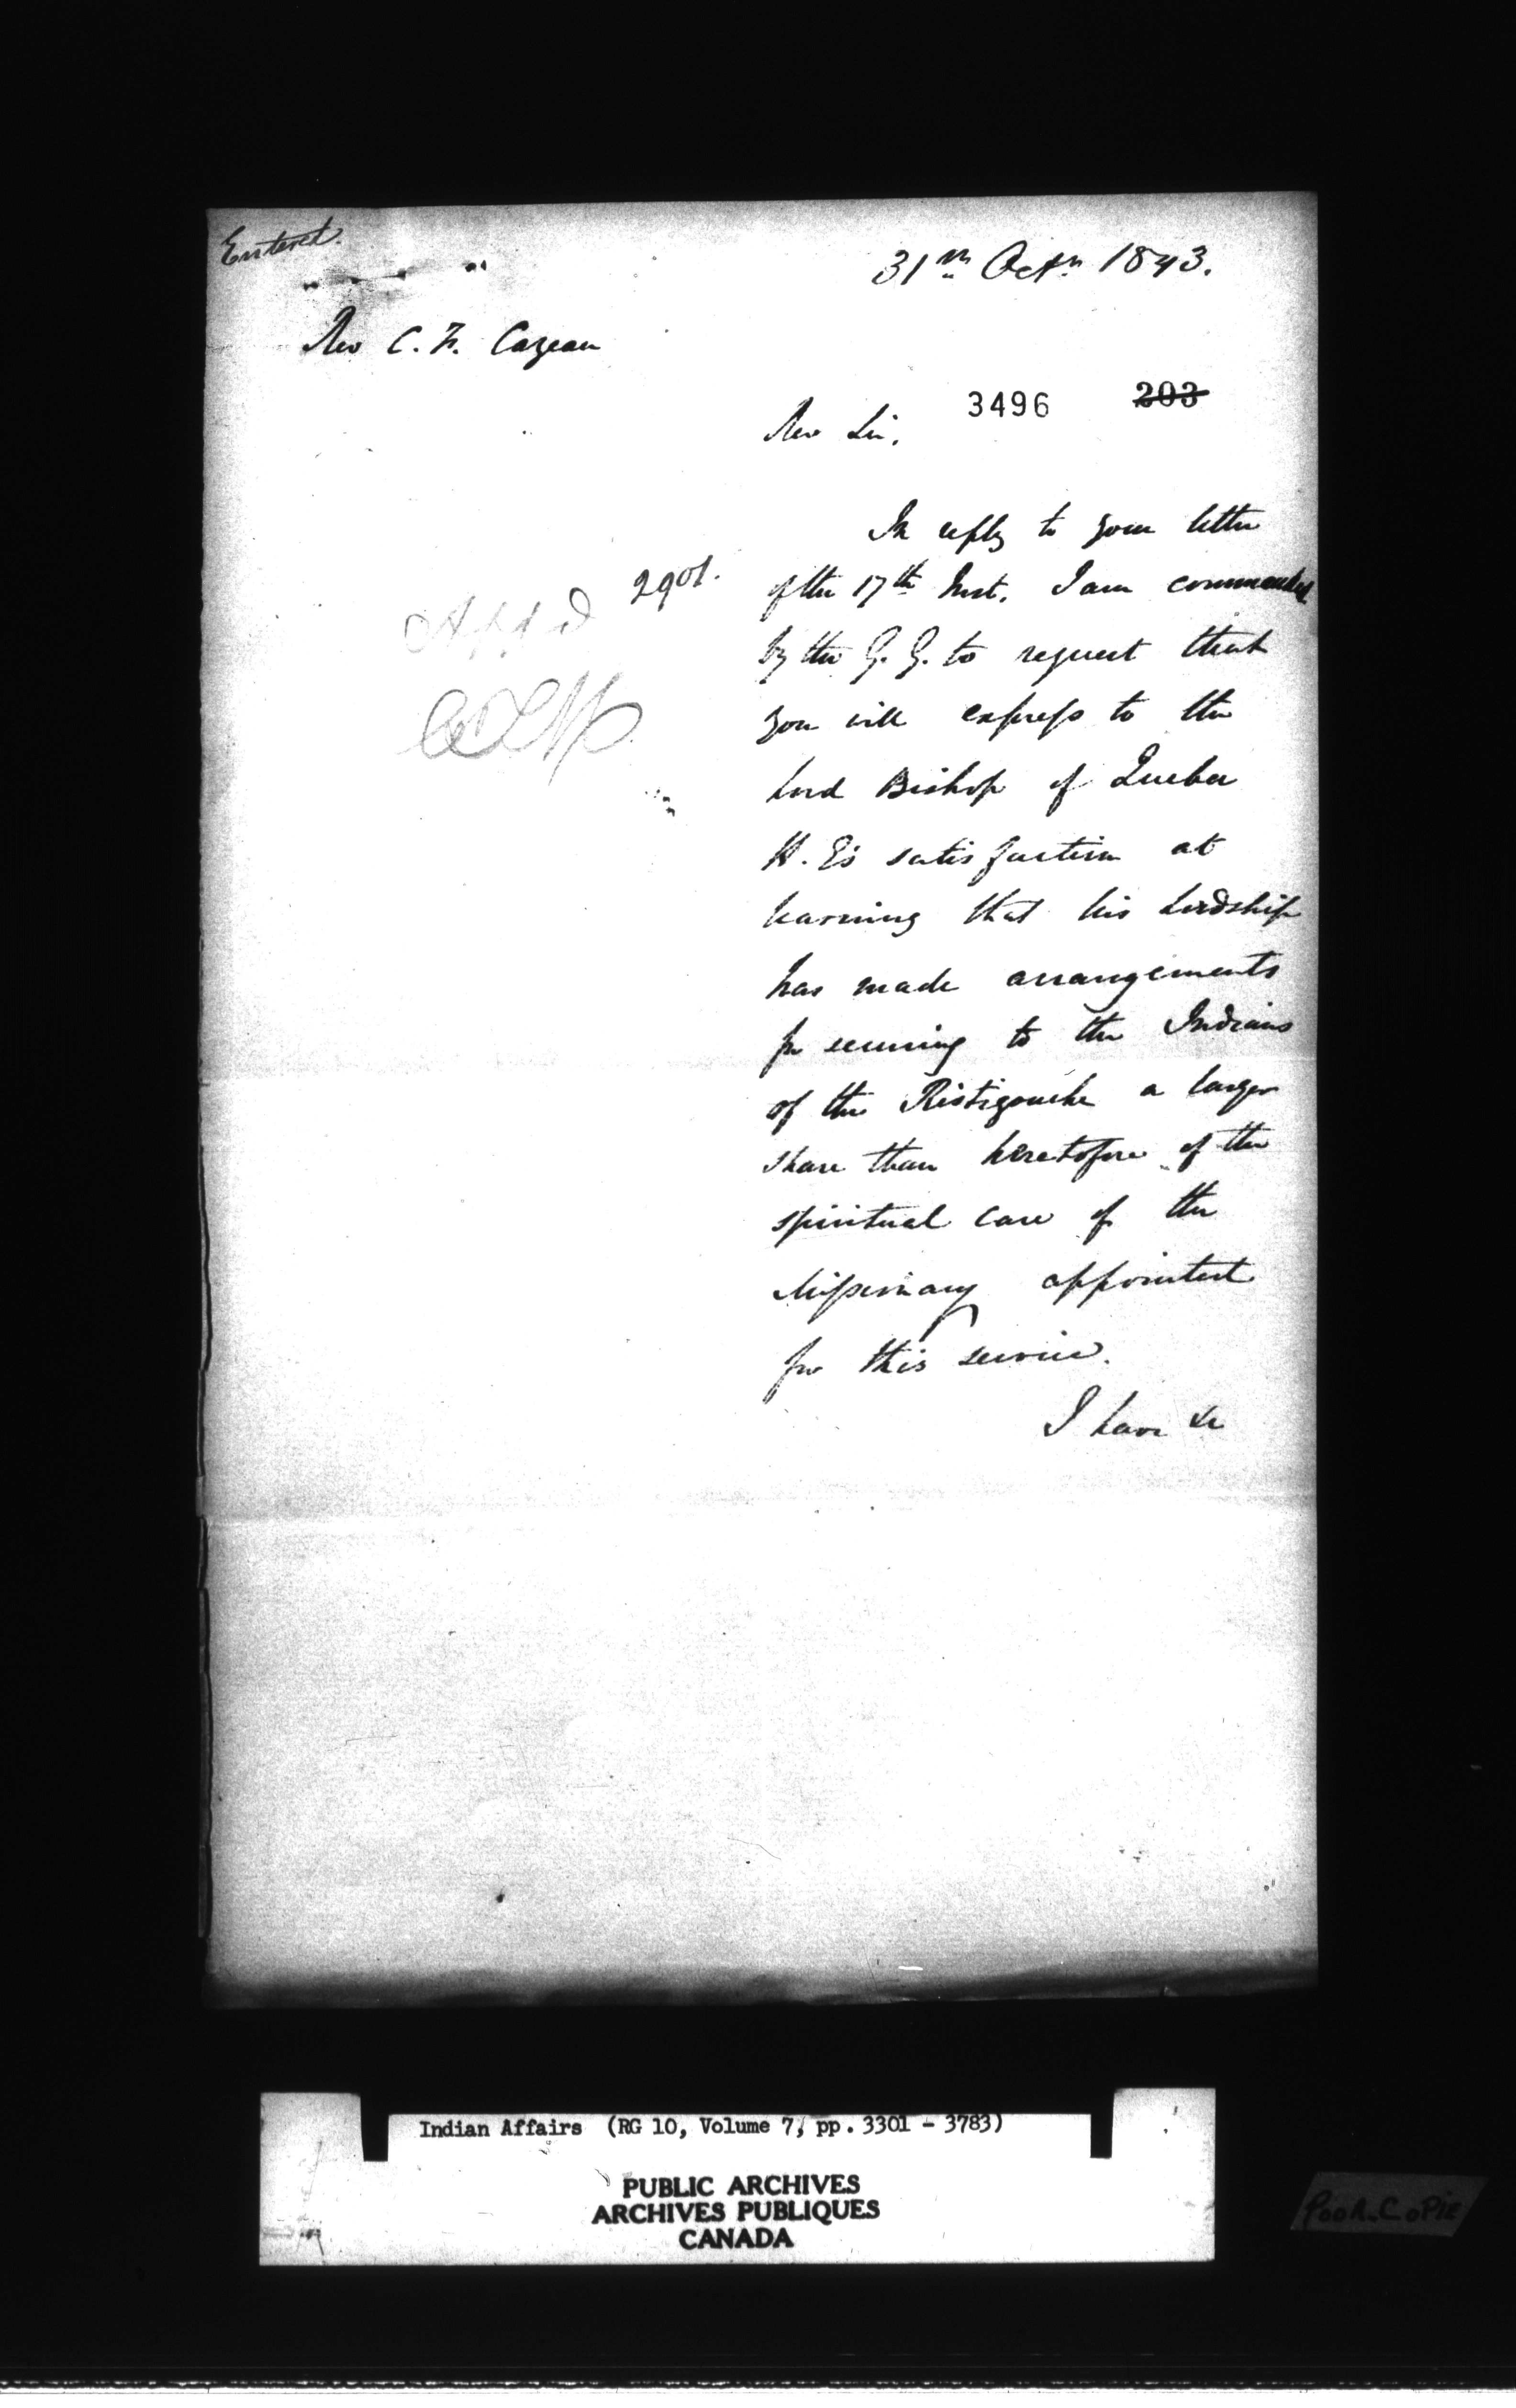 Entered.
31st Octr 1843.
Rev C. F. Cazeau
3496 203
Rev Sir,
In reply to your letter
of the 17th Inst. I am commanded
by the G. G. to request that
you will express to the
Lord Bishop of Quebec
H. E's satisfaction at
learning that his Lordship
has made arrangements
for securing to the Indians
of the Ristigouche a larger
share than heretofore of the
spiritual care of the
Missionary appointed
for this service.
I have &c
Appd 29 Oct.
Indian Affairs (RG 10, Volume 7, pp. 3301 - 3783)
PUBLIC ARCHIVES
ARCHIVES PUBLIQUES
CANADA
POOR COPIE